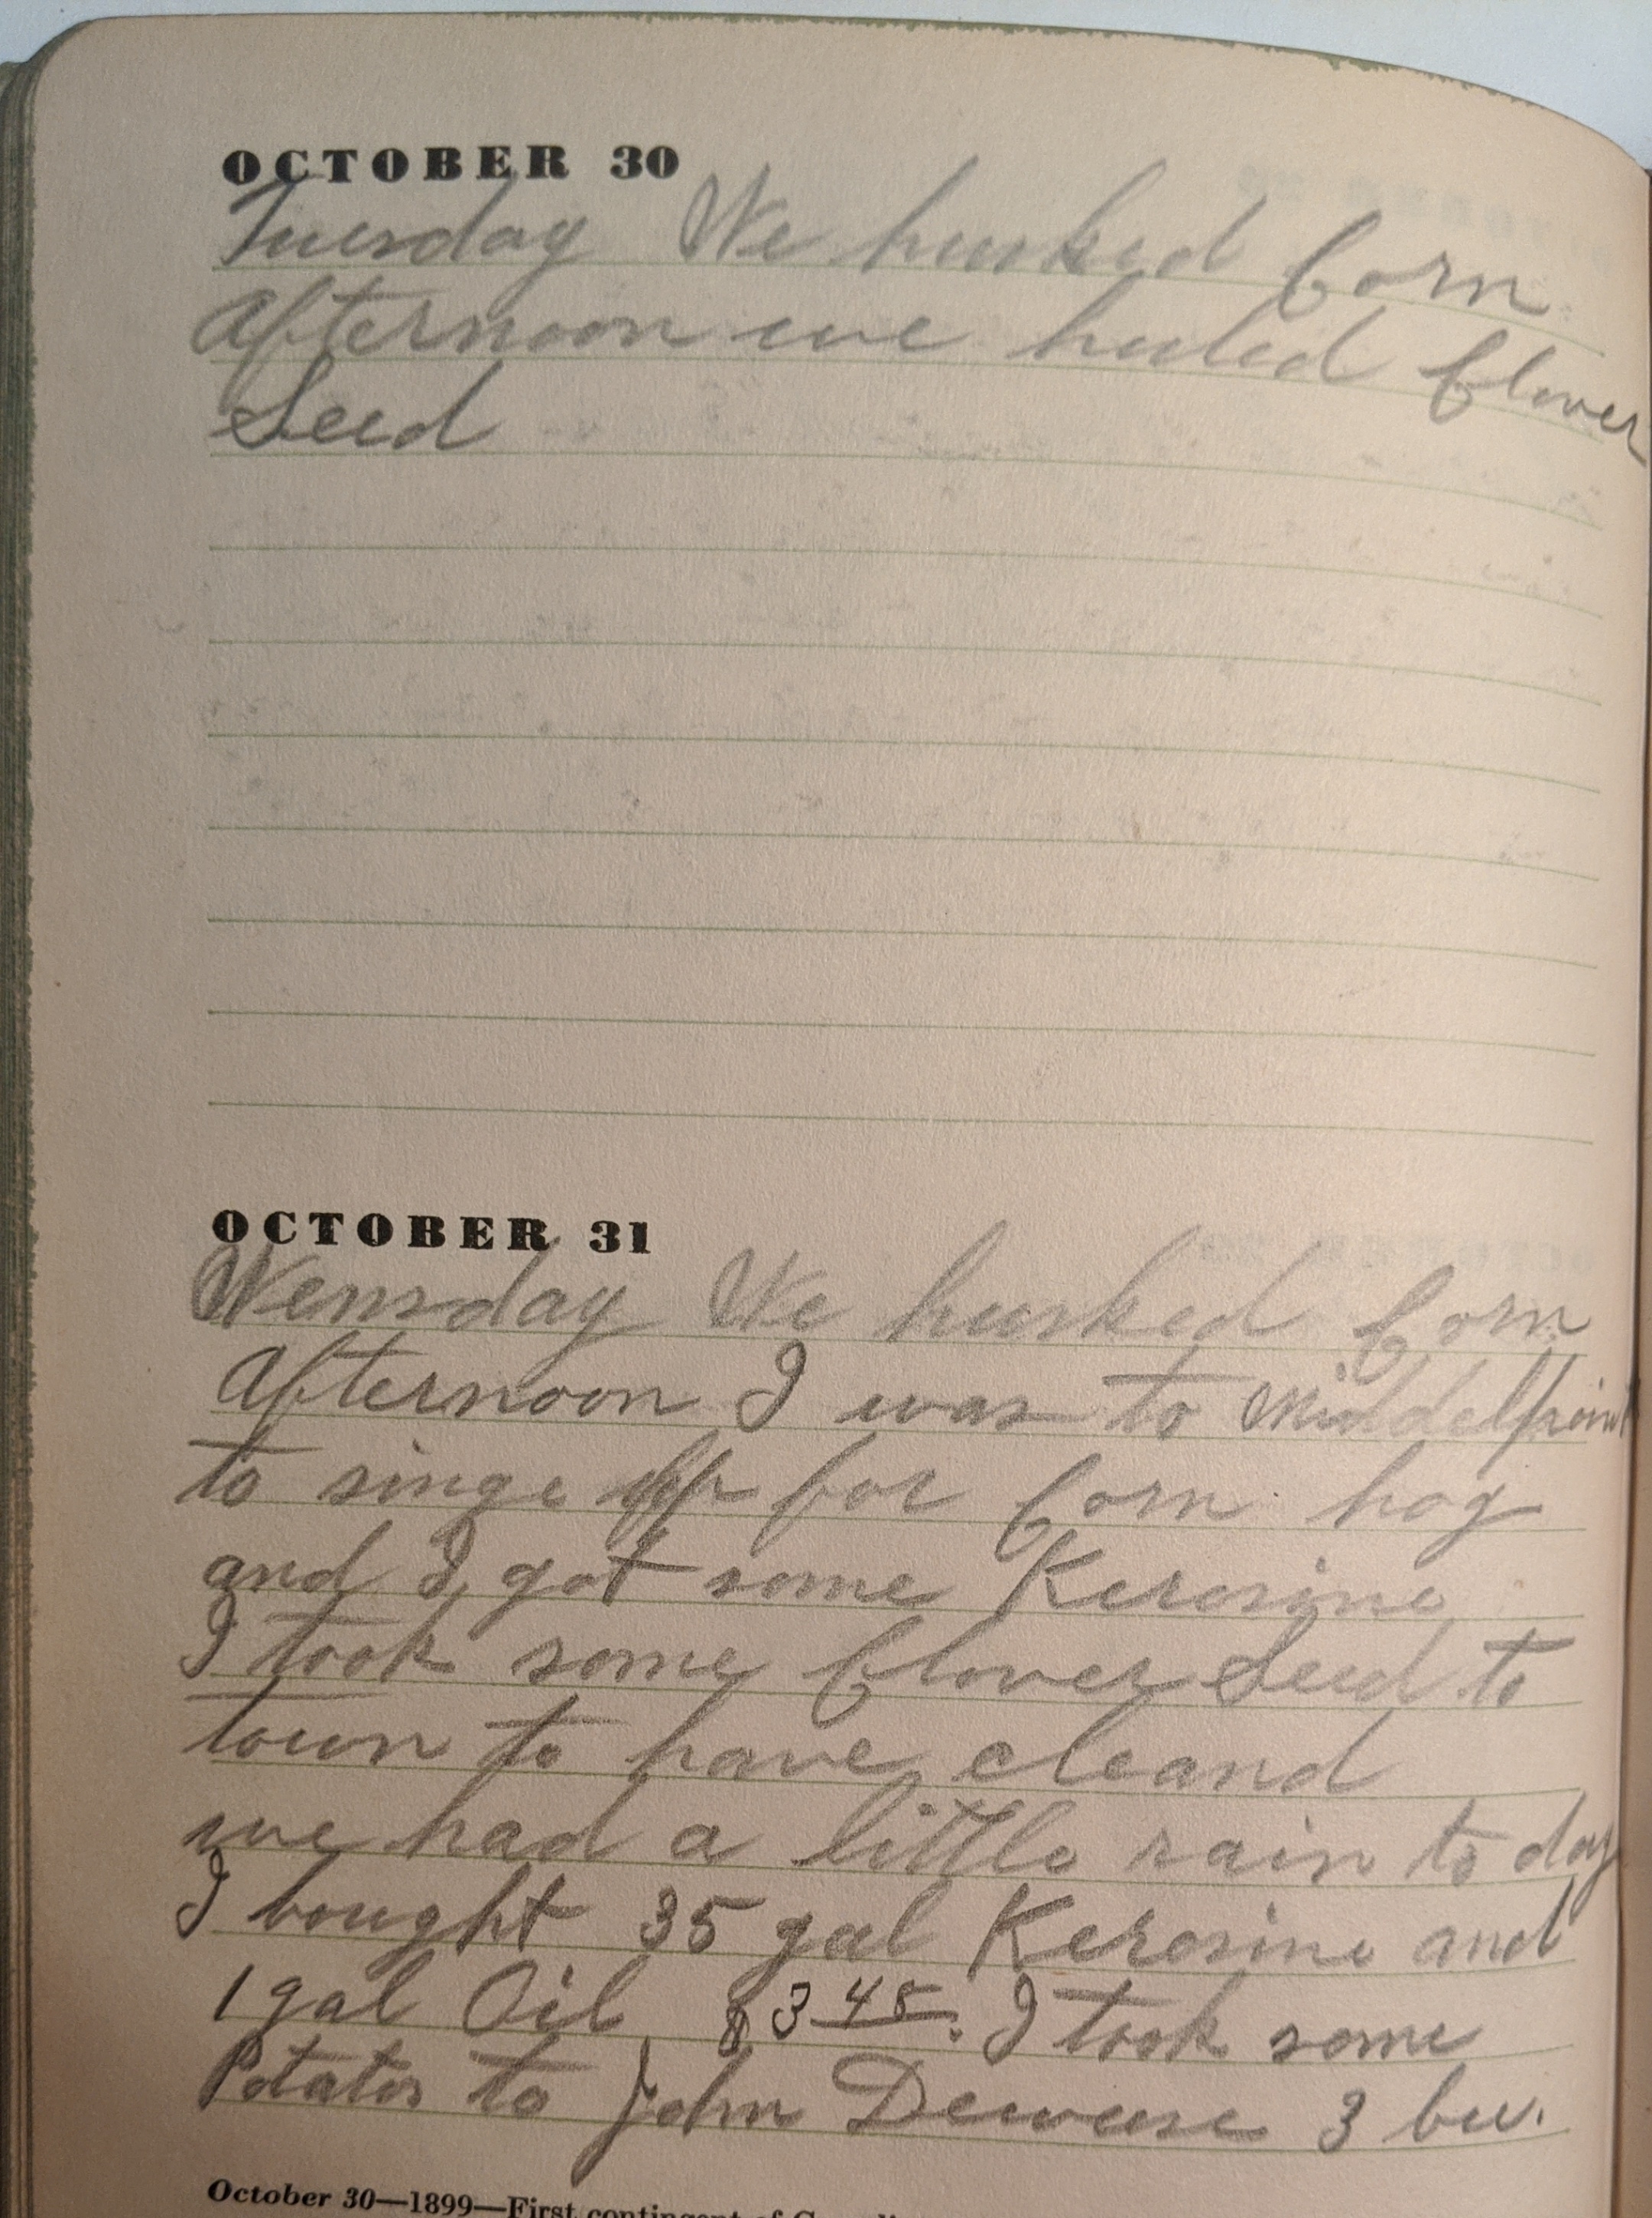 OCTOBER 30
Tuesday We husked Corn
Afternoon we huled Clover
Seed
OCTOBER 31
Wensday We husked Corn
Afternoon I was to Middelpoint
to singe up for Corn hog
and I got some Kerosine
I took some Clover Seed to
town to have cleand
we had a little rain to day
I bought 35 gal Kerosine and
1 gal Oil $3 45. I took some
Potatos to John Deweese 3 bu.
October 30—1899—First contingent of